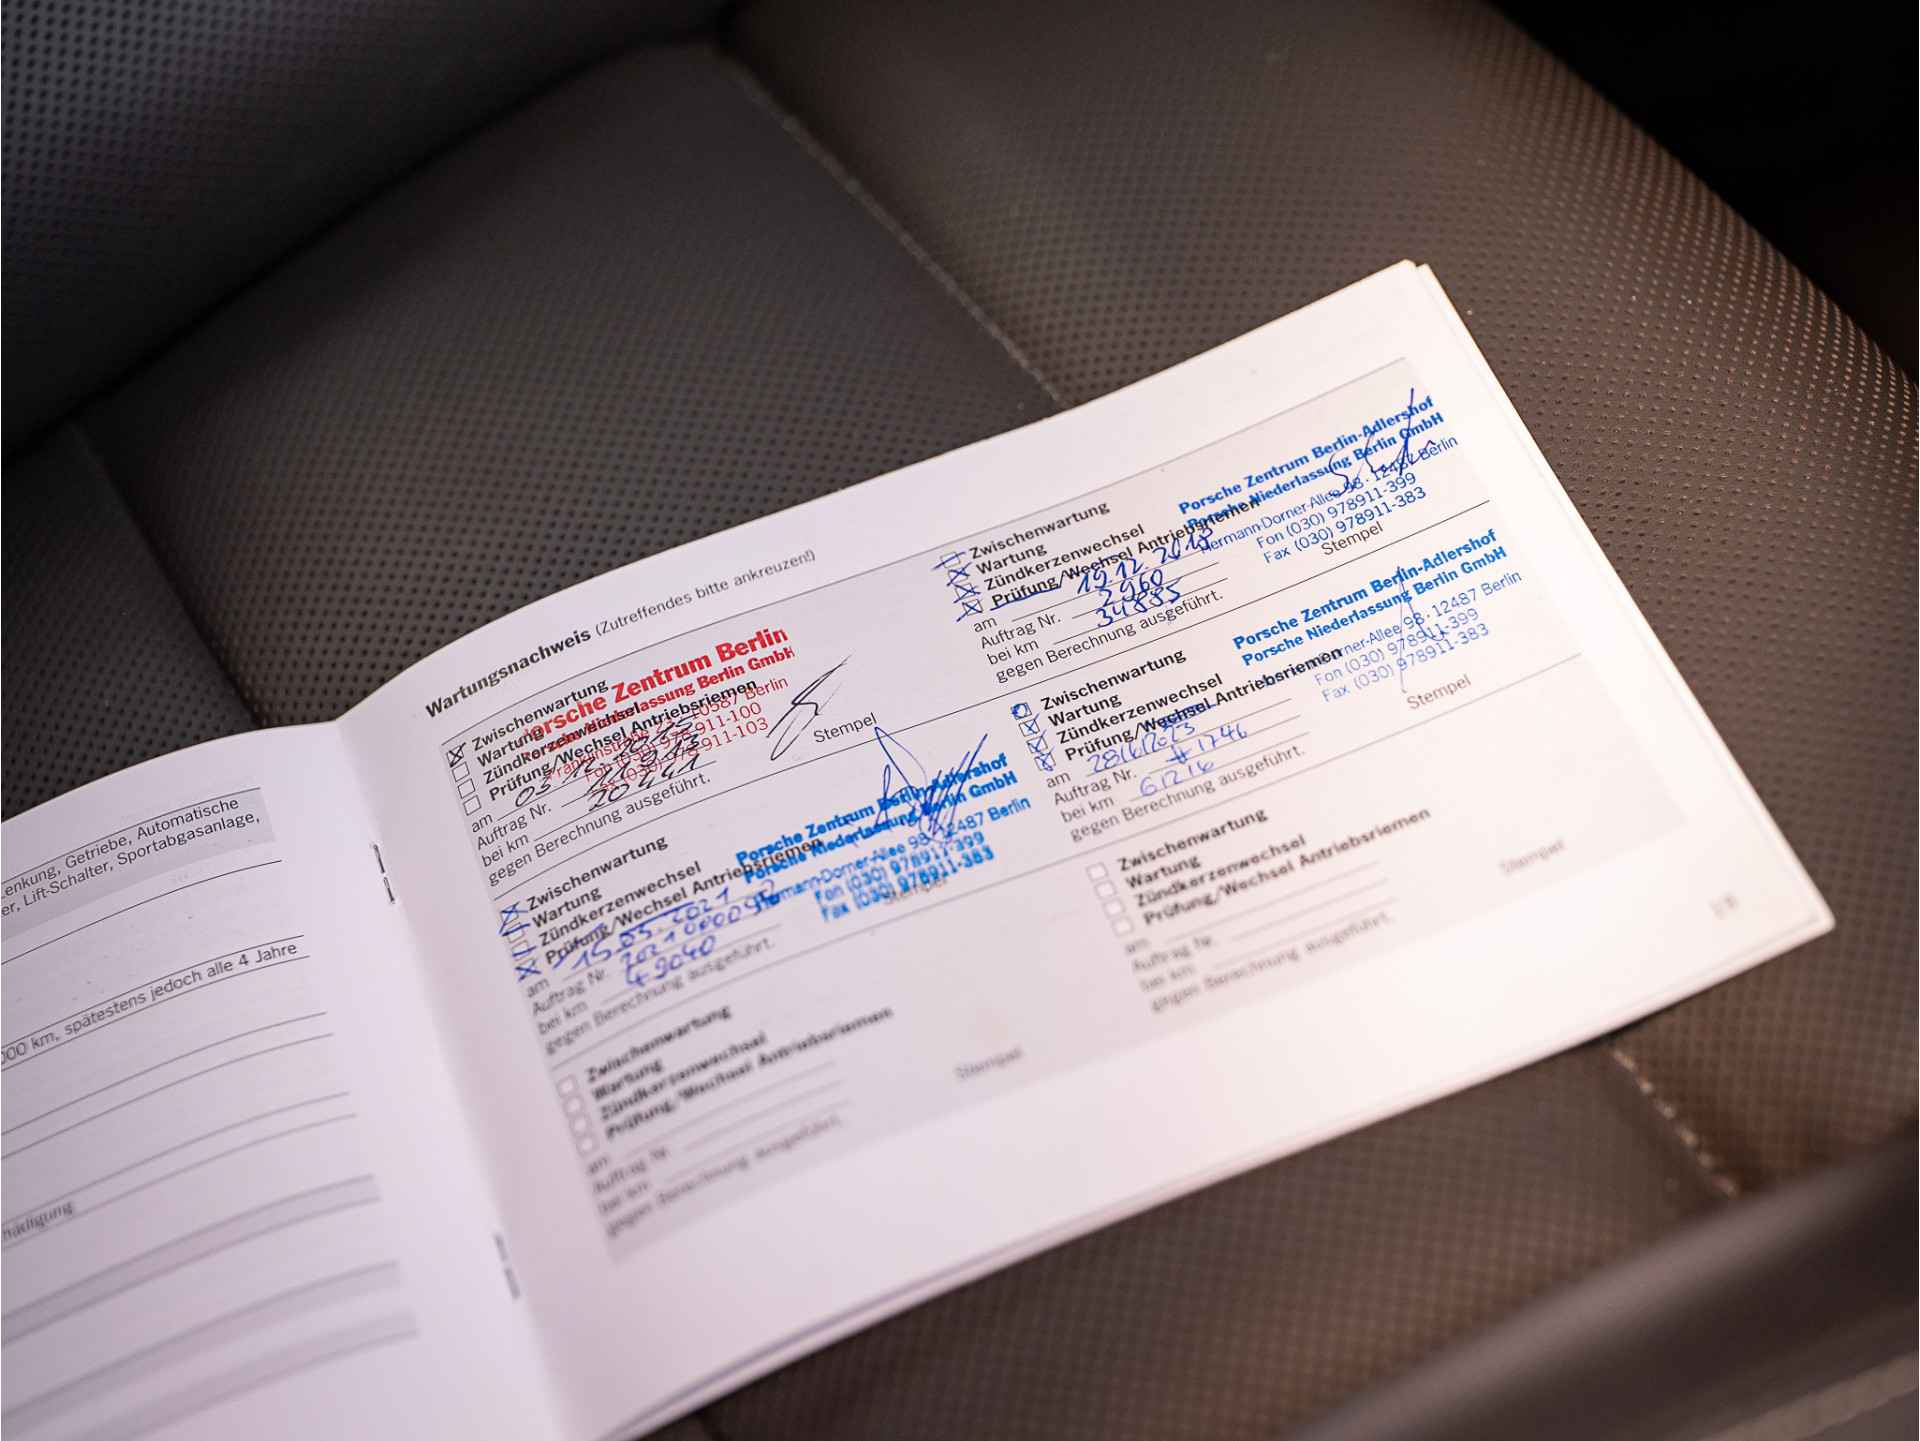 enkung, Getriebe, Automatische
er, Lift-Schalter, Sportabgasanlage,
000 km, spätestens jedoch alle 4 Jahre
hädigung
Wartungsnachweis (Zutreffendes bitte ankreuzen!)
Zwischenwartung
Wartung
Zündkerzenwechsel
Prüfung/Wechsel Antriebsriemen
am
Auftrag Nr.
bei km 20441
gegen Berechnung ausgeführt.
Porsche Zentrum Berlin
Porsche Niederlassung Berlin GmbH
10587 Berlin
Fon (030) 978-911-100
911-103
Stempel
Zwischenwartung
Wartung
Zündkerzenwechsel
Prüfung/Wechsel Antriebsriemen
am 15.03.2021
Auftrag Nr.
bei km 49040
gegen Berechnung ausgeführt.
Porsche Zentrum Berlin-Adlershof
Porsche Niederlassung Berlin GmbH
Hermann-Dorner-Allee 98 · 12487 Berlin
Fon (030) 978911-399
Fax (030) 978911-383
Stempel
Zwischenwartung
Wartung
Zündkerzenwechsel
Prüfung/Wechsel Antriebsriemen
am
Auftrag Nr.
bei km
gegen Berechnung ausgeführt.
Stempel
Zwischenwartung
Wartung
Zündkerzenwechsel
Prüfung/Wechsel Antriebsriemen
am 19.12.2018
Auftrag Nr. 2960
bei km 34885
gegen Berechnung ausgeführt.
Porsche Zentrum Berlin-Adlershof
Porsche Niederlassung Berlin GmbH
Hermann-Dorner-Allee 98 · 12487 Berlin
Fon (030) 978911-399
Fax (030) 978911-383
Stempel
Zwischenwartung
Wartung
Zündkerzenwechsel
Prüfung/Wechsel Antriebsriemen
am 28/6/2023
Auftrag Nr. #1746
bei km 61216
gegen Berechnung ausgeführt.
Porsche Zentrum Berlin-Adlershof
Porsche Niederlassung Berlin GmbH
Dorner-Allee 98 · 12487 Berlin
Fon (030) 978911-399
Fax (030) 978911-383
Stempel
Zwischenwartung
Wartung
Zündkerzenwechsel
Prüfung/Wechsel Antriebsriemen
am
Auftrag Nr.
bei km
gegen Berechnung ausgeführt.
Stempel